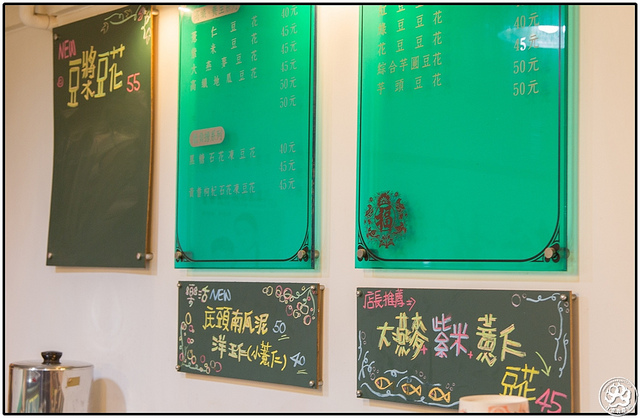 NEW
豆漿豆花 55
40元
仁豆花 45元
米豆花 45元
大燕麥豆花 45元
地瓜豆花 50元
50元
石花凍豆花 40元
45元
枸杞石花凍豆花 45元
紅豆豆花
綠豆豆花 40元
花豆豆花 45元
綜合芋圓豆花 50元
芋頭豆花 50元
樂活 NEW
南瓜泥 50
洋玉(小薏仁) 40
店長推薦⇒
大燕麥+紫米+薏仁
豆花 45